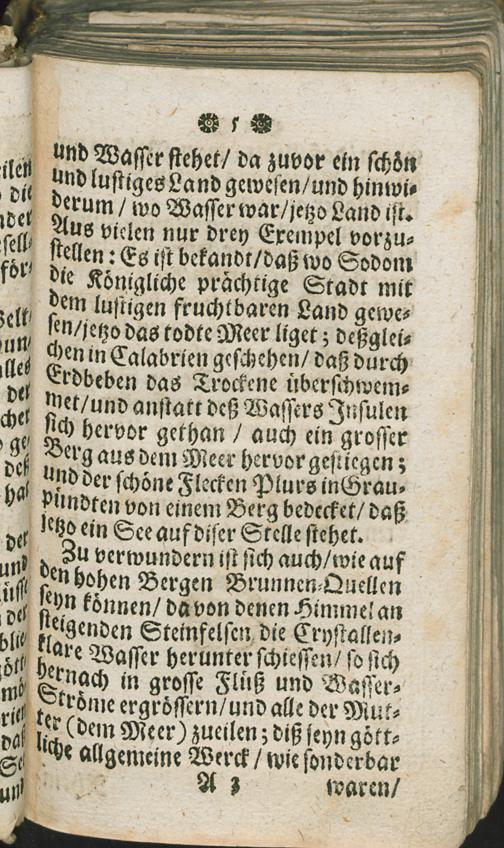 5
und Wasser stehet/ da zuvor ein schön
und lustiges Land gewesen/und hinwi-
derum / wo Wasser war/jetzo Land ist.
Aus vielen nur drey Exempel vorzu-
stellen : Es ist bekandt/daß wo Sodom
die Königliche prächtige Stadt mit
dem lustigen fruchtbaren Land gewe-
sen/jetzo das todte Meer liget ; deßglei-
chen in Calabrien geschehen/ daß durch
Erdbeben das Trockene überschwem-
met/und anstatt deß Wassers Insulen
sich hervor gethan / auch ein grosser
Berg aus dem Meer hervor gestiegen ;
und der schöne Flecken Plurs in Grau-
pündten von einem Berg bedecket/ daß
jetzo ein See auf diser Stelle stehet.
Zu verwundern ist sich auch/wie auf
den hohen Bergen Brunnen-Quellen
seyn können/ da von denen Himmel an
steigenden Steinfelsen die Crystallen-
klare Wasser herunter schiessen/ so sich
hernach in grosse Flüß und Wasser-
Ströme ergrössern/und alle der Mut-
ter (dem Meer) zueilen ; diß seyn gött-
liche allgemeine Werck / wie sonderbar
A 3 waren/